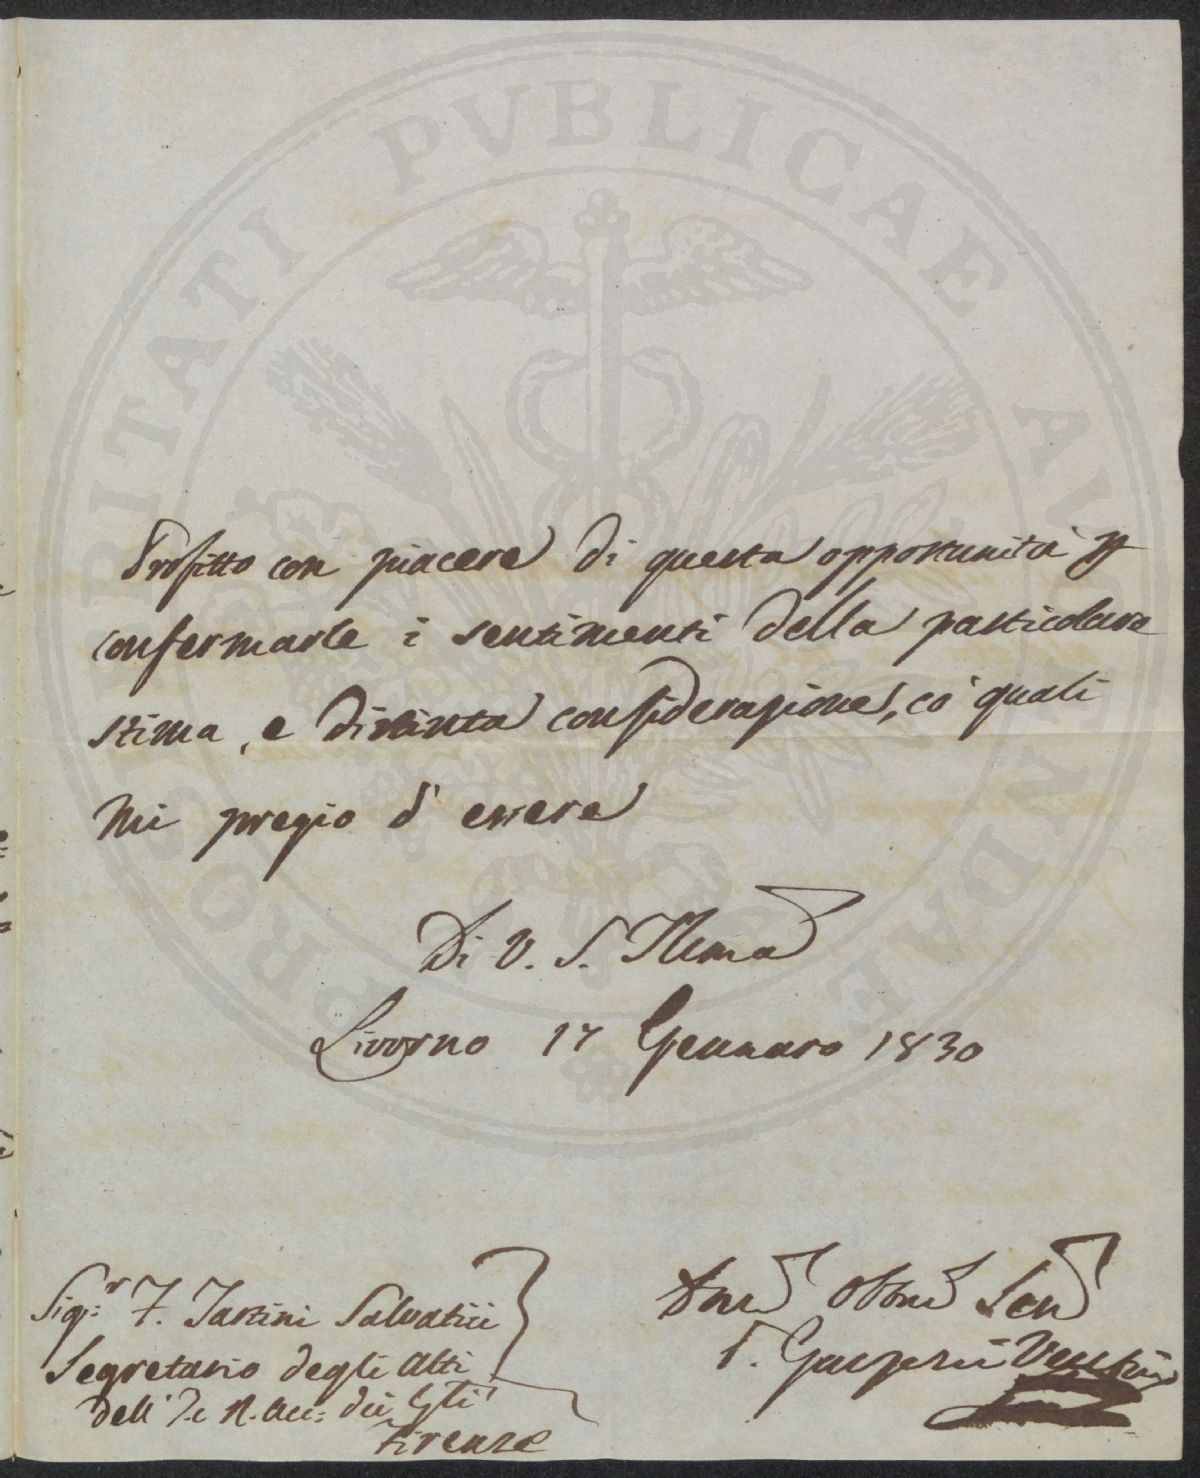 PROSPERITATI PUBLICAE AUGENDAE
Profitto con piacere di questa opportunità p
confermarle i sentimenti della particolare
stima, e distinta considerazione, co' quali
mi pregio d'essere
Di V. S. Illma
Livorno 17 Gennaro 1830
Sigr F. Tartini Salvatici
Segretario degli Atti
dell' I. e R. Acc: dei Gfli
Firenze
Devo Obbmo Serv